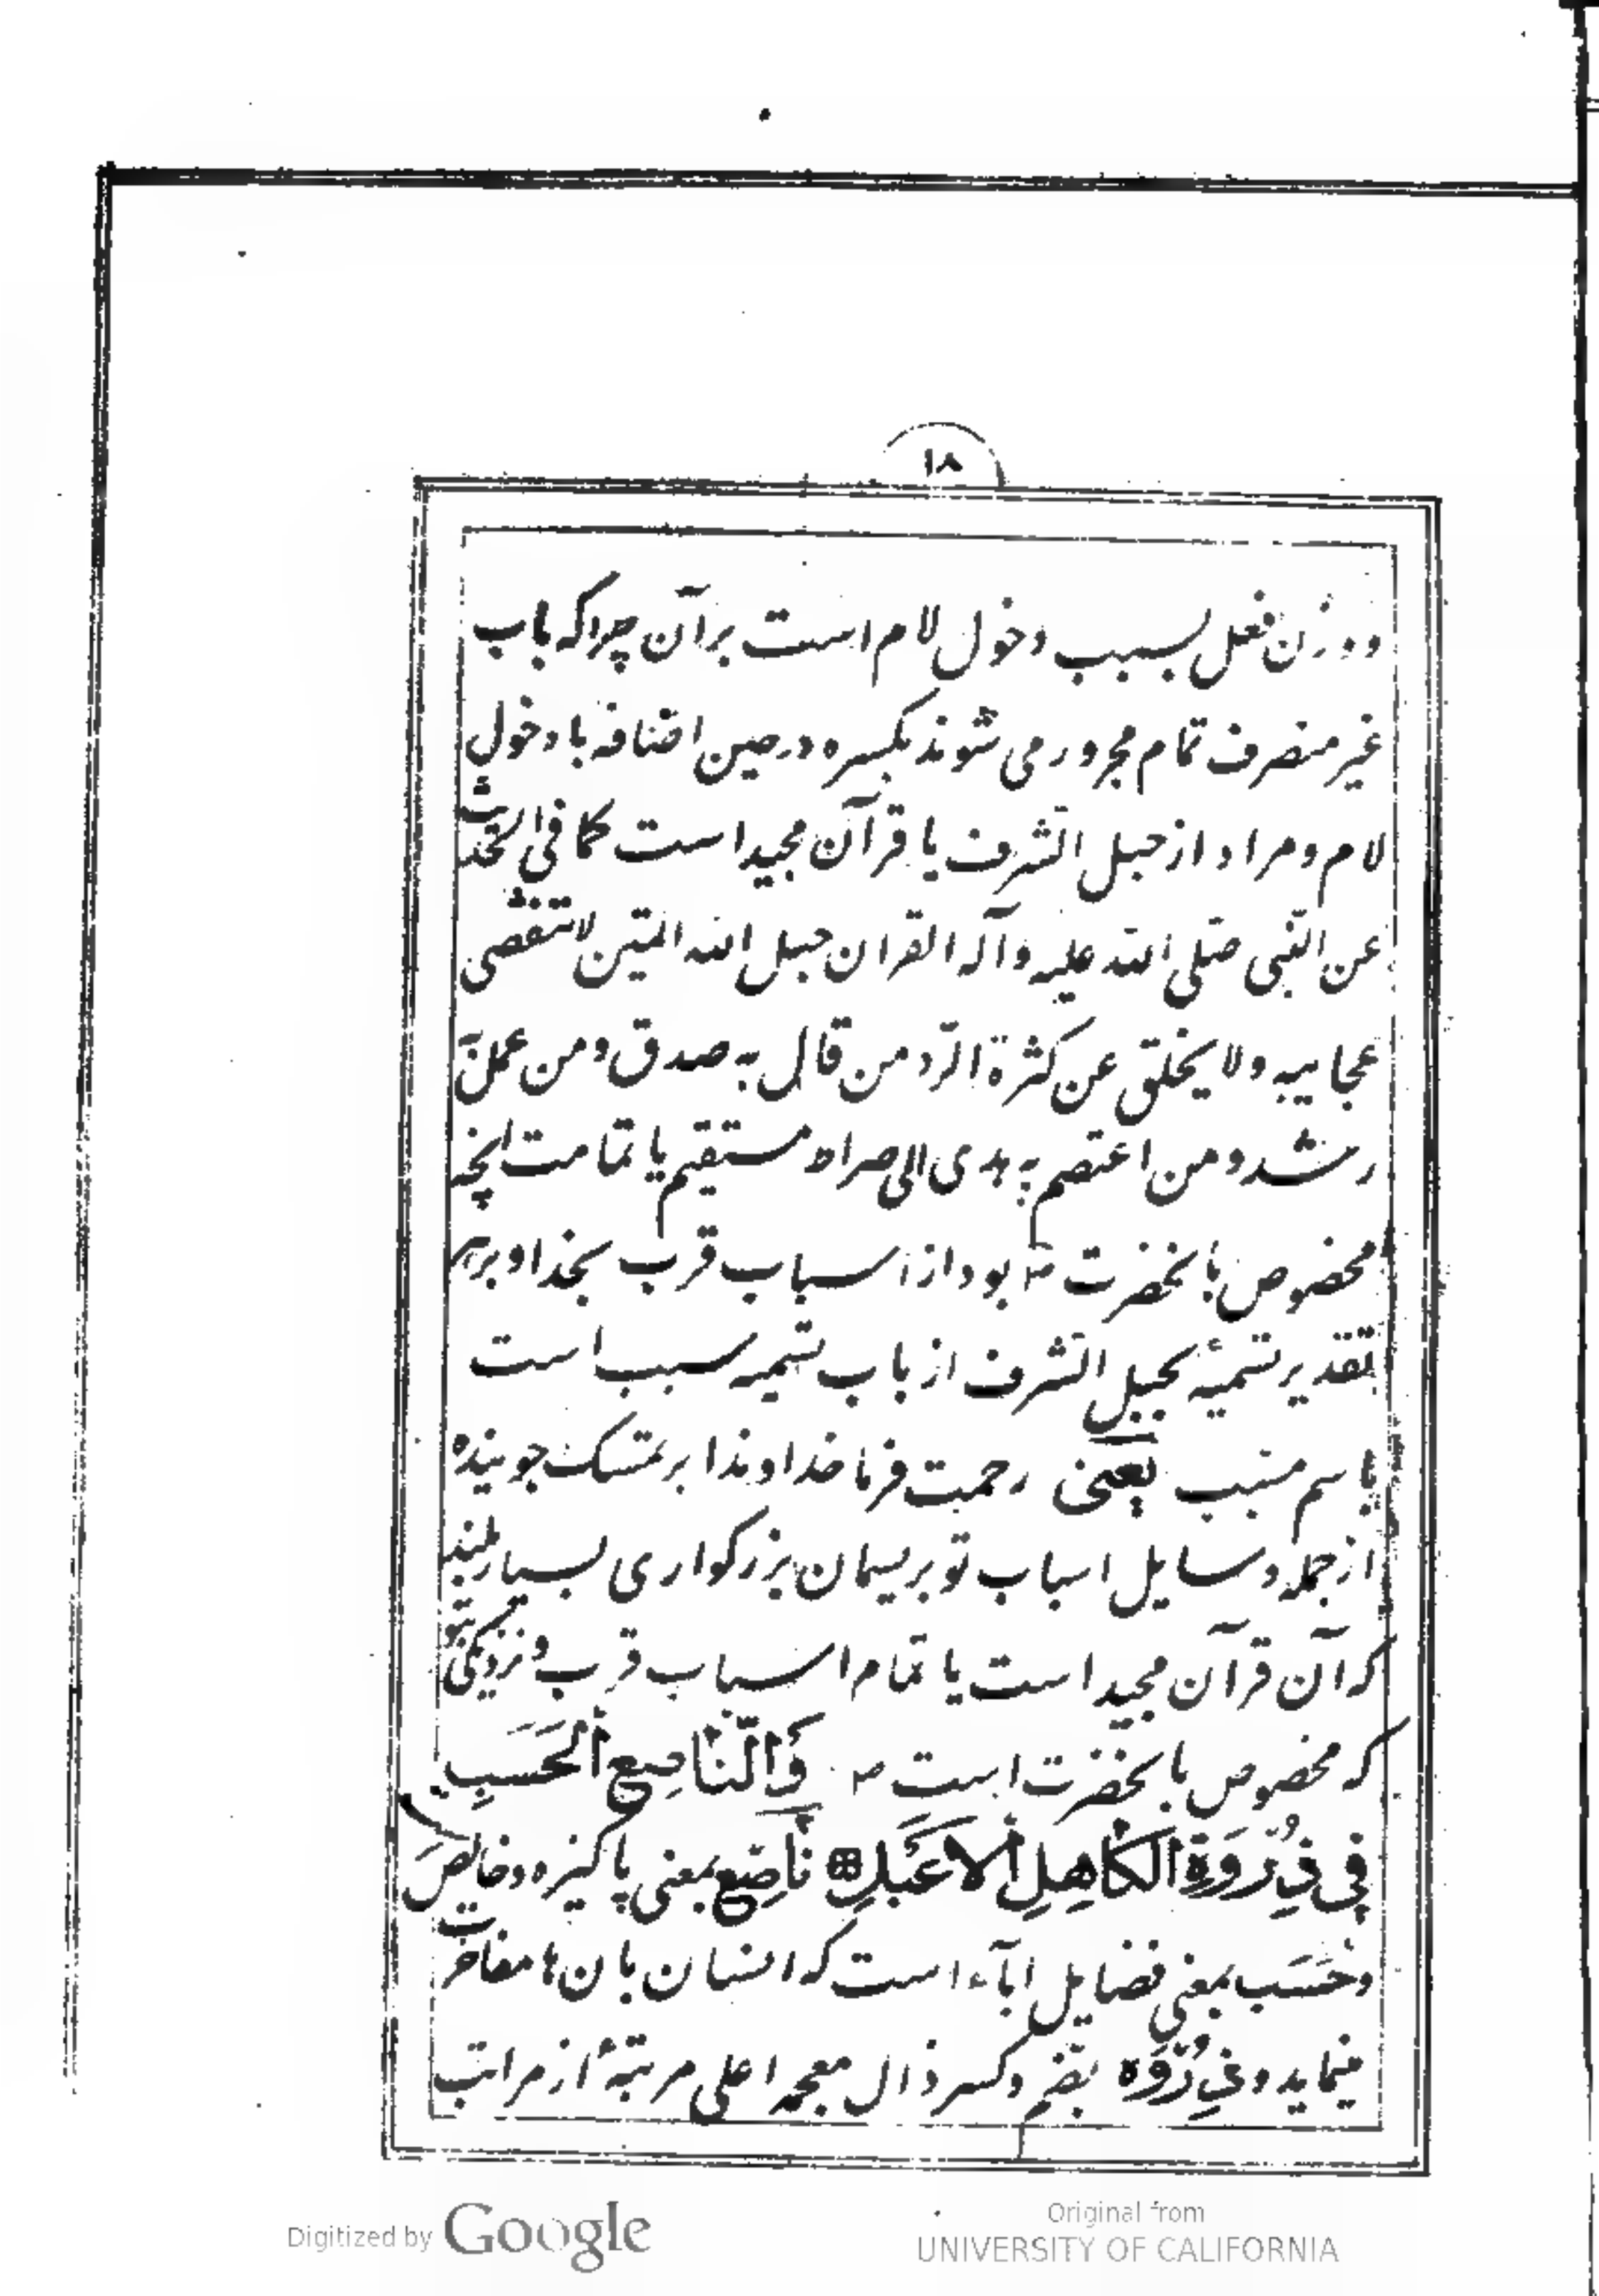 ١٨
و وزن فعل بسبب دخول لام است بر آن چرا که باب
غیر منصرف تمام مجرور می شوند بکسره در حین اضافه با دخول
لام و مراد از حبل الشرف یا قرآن مجید است کما فی الحدیث
عن النبی صلی الله علیه و آله القران حبل الله المتین لا تنقضی
عجایبه ولا یخلق عن کثرة الرد من قال به صدق و من عمل به
رشد و من اعتصم به هدی الی صراط مستقیم یا تمامت انچه
مخصوص بانحضرت ص بود از اسباب قرب بخدا و بر هر
تقدیر تسمیهٔ بحبل الشرف از باب تسمیه سبب است
باسم مسبب یعنی رحمت فرما خداوندا بر تمسک جوینده
از جمله وسایل اسباب تو بریسمان بزرکواری بسیار بلند
که آن قرآن مجید است یا تمام اسباب قرب و نزدیکی بتو
که مخصوص بانحضرت است ص وَالنّاصِعِ الْحَسَبِ
فِي ذِرْوَةِ الْكاهِلِ الْاَعْبَلِ ناصِع بمعنی پاکیزه و خالص
و حَسَب بمعنی فضایل اباء است که انسان بان ها مفاخرت
مینماید و ذِرْوَه بضم و کسر ذال معجمه اعلی مرتبهٔ از مراتب
Digitized by Google
Original from
UNIVERSITY OF CALIFORNIA